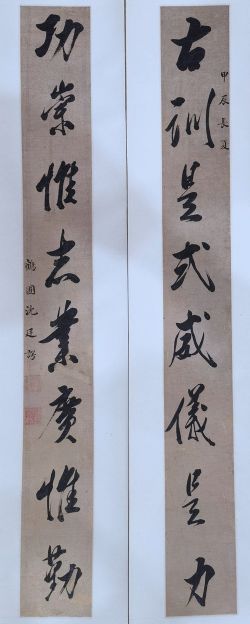 古訓是式威儀是力
甲辰長夏
功崇惟志業廣惟勤
沈廷